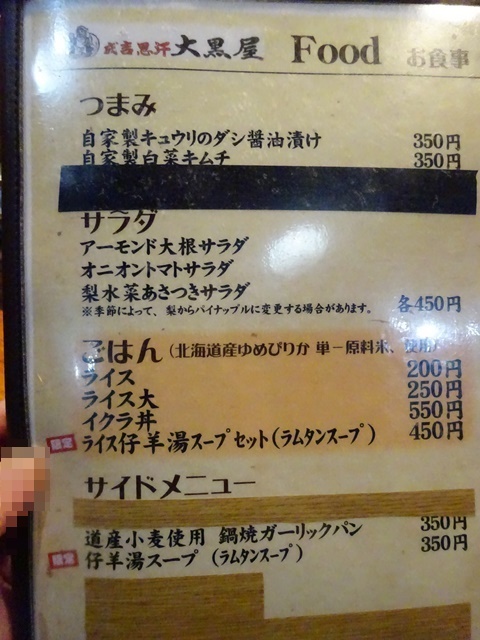 成吉思汗 大黒屋 Food お食事
つまみ
自家製キュウリのダシ醤油漬け 350円
自家製白菜キムチ 350円
サラダ
アーモンド大根サラダ
オニオントマトサラダ
梨水菜あさつきサラダ 各450円
※季節によって、梨からパイナップルに変更する場合があります。
ごはん (北海道産ゆめぴりか 単一原料米、使用)
ライス 200円
ライス大 250円
イクラ丼 550円
限定 ライス仔羊湯スープセット(ラムタンスープ) 450円
サイドメニュー
道産小麦使用 鍋焼ガーリックパン 350円
限定 仔羊湯スープ (ラムタンスープ) 350円